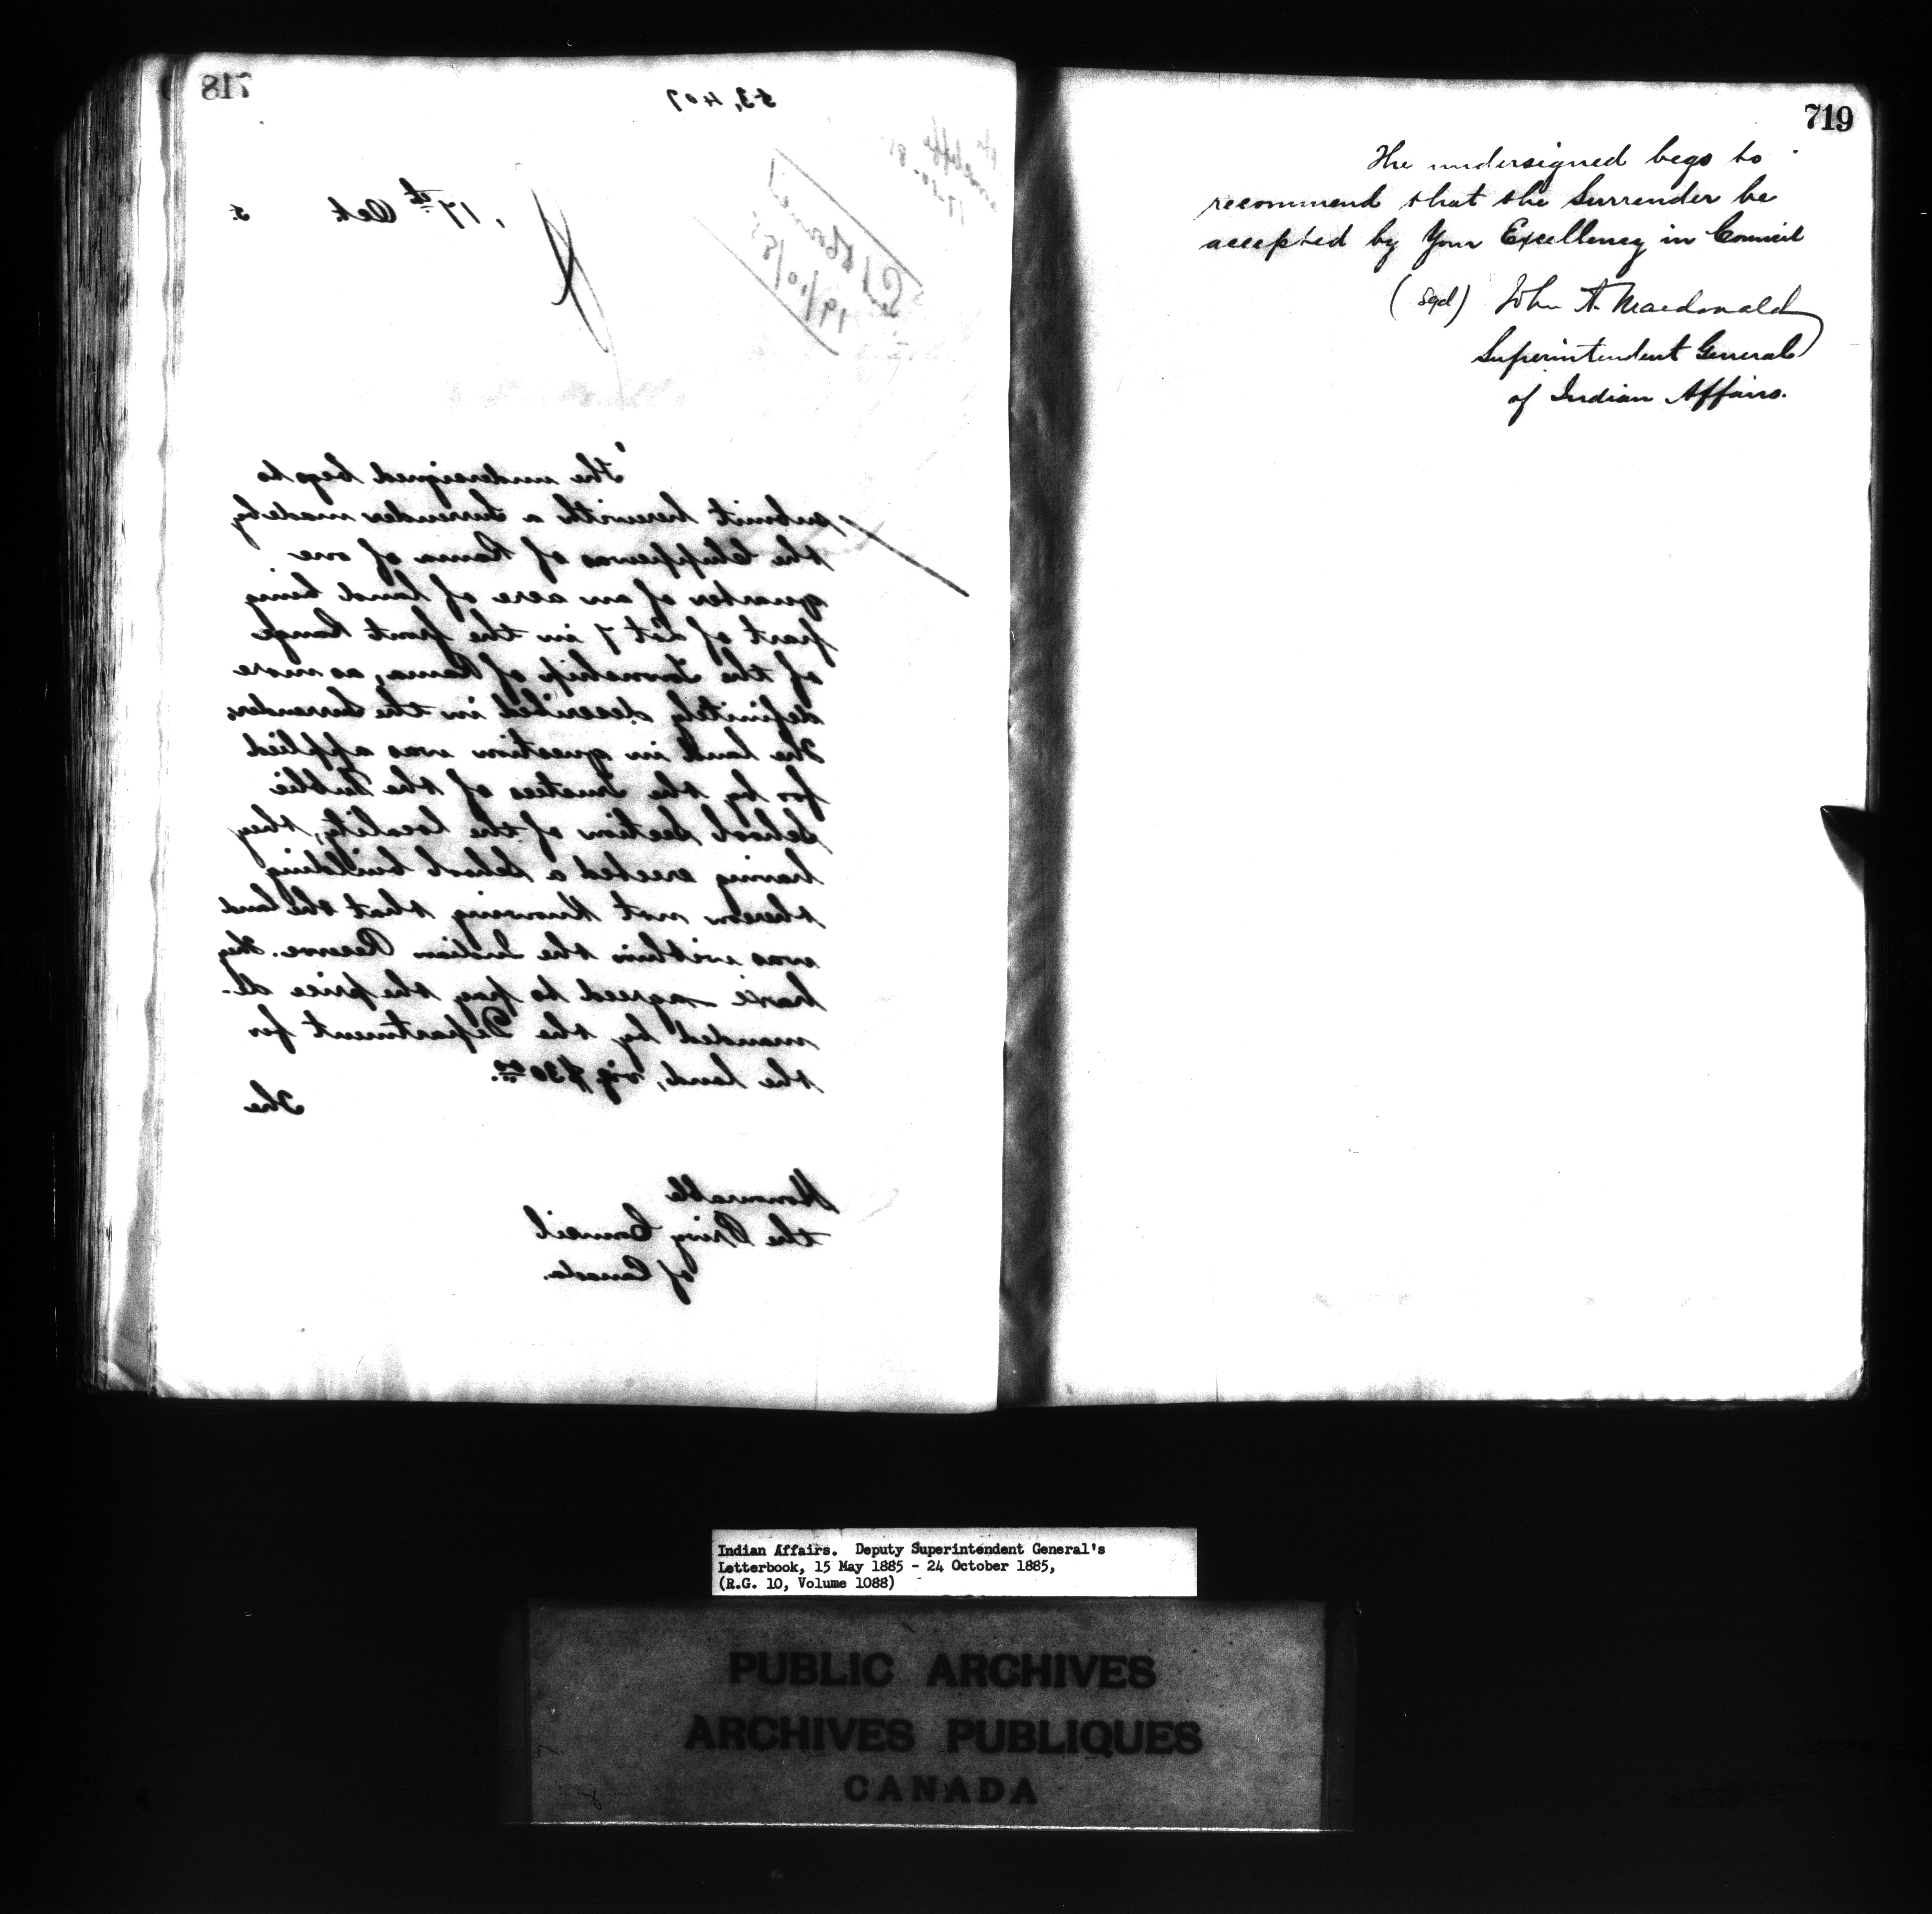 718
53,407
17th Oct 5.
The undersigned begs to
submit herewith a Surrender made by
the Chippewas of Rama of one
quarter of an acre of land being
part of Lot 7 in the front Range
of the Township of Rama, as more
definitely described in the Surrender.
The land in question was applied
for by the Trustees of the Public
School Section of the locality, they
having erected a School building
thereon not knowing that the land
was within the Indian Reserve. They
have agreed to pay the price de-
manded by the Department for
the land, viz $30.00.
The
Honourable
the Privy Council
of Canada.
719
The undersigned begs to
recommend that the Surrender be
accepted by Your Excellency in Council
(Sgd) John A. Macdonald
Superintendent General
of Indian Affairs.
Indian Affairs. Deputy Superintendent General's
Letterbook, 15 May 1885 - 24 October 1885,
(R.G. 10, Volume 1088)
PUBLIC ARCHIVES
ARCHIVES PUBLIQUES
CANADA